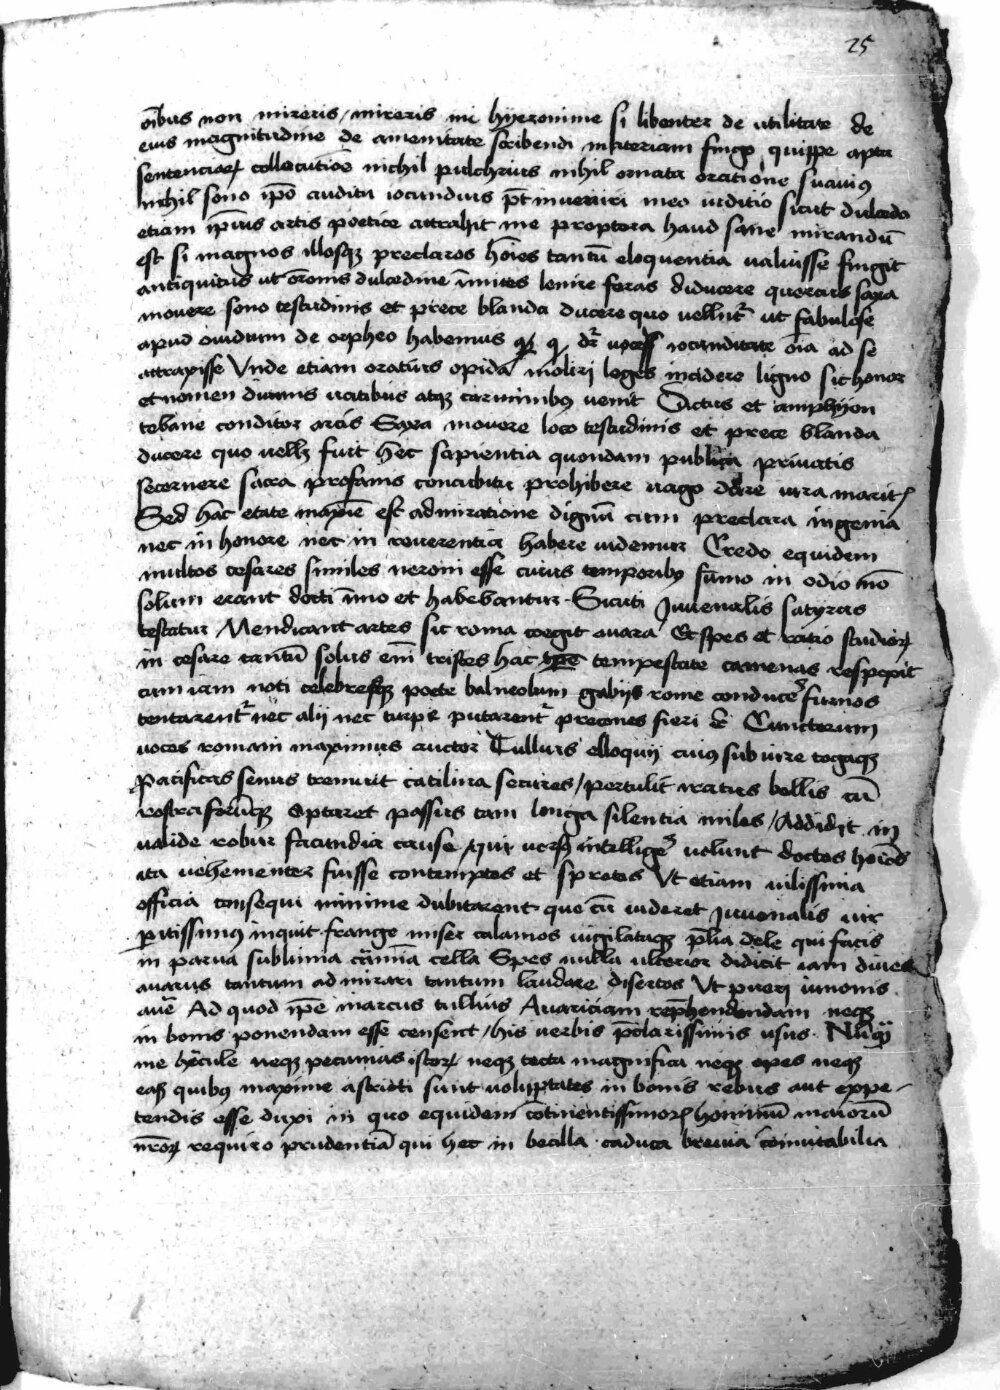 25
oībus non mireris / mireris mi hyeronime si libenter de utilitate de
eius magnitudine de amenitate scribendi materiam fingo quippe apta
sentenciarꝝ collocutiōe nichil pulchrius nihil ornata oratione suavius
nichil sono ip̄o auditu iocundius pt̄ inveniri meo iuditio sicut dulcedo
etiam ip̄ius artis poetice attrahit me proptera haud sane mirandū
est si magnos illosqꝫ preclaros hoīes tantū eloquentia valuisse fingit
antiquitas ut orōnis dulcedine īmites lenire feras diducere quercus saxa
movere sono testudinis et prece blanda ducere quo vellnt ut fabulose
apud ovidium de orpheo habemus dr̄ vocis iocunditate oīa ad se
attraxisse Unde etiam oraturs opida moliri leges incidere ligno sic honor
et nomen divinis vatibus atqꝫ carminibꝰ venit Dictus et amphyon
tebane conditor arcis Saxa movere loco testudinis et prece blanda
ducere quo vellꝫ fuit hec sapientia quondam publica privatis
secernere sacra profanis concubitu prohibere vago dare iura marit
Sed hac etate maxīe est admiratione dignū cum preclara ingenia
nec in honore nec in reverentia habere videmur Credo equidem
multos cesares similes neroni esse cuius temporibꝰ sūmo in odio nō
solum erant docti īmo et habebantur Sicuti Juvenalis satyrus
testatur Mendicant artes sic roma coegit avara Et spes et ratio studiorꝝ
in cesare tantū solus enī tristes hac tempestate camenas respexit
cum iam noti celebresqꝫ poete balneolum gabijs rome conducere furnos
tentarent nec alij nec turpe putarent precones fieri Cunctorum
voces romani maximus auctor Tullius eloquij cuius sub iure togaqꝫ
Pacificas senus tremuit catilina secures / pertulit iratus bellis cū
rostra forūqꝫ optaret passus tam longa silentia miles / Addidit in
valide robur facundia cause / qui versꝰ intelligere volunt doctos hoīes
ita vehementer fuisse contemptos et spretos Ut etiam vilissima
officia consequi minime dubitarent que cū videret Juvenalis vir
peritissimus inquit frange miser calamos vigilataqꝫ plia dele qui facis
in parva sublimia cārmīa cella Spes nulla ulterior didicit iam dives
avarus tantum admirari tantum laudare disertos Ut pueri iunonis
avē Ad quod ip̄e marcus tullius Avariciam rep̄hendendam neqꝫ
in bonis ponendam esse censent / his verbis p̄clarissimis usus Nūqꝫ
me hercule neqꝫ pecunias istorꝝ neqꝫ tecta magnifica neqꝫ opes neqꝫ
eas quibꝰ maxime astricti sunt voluptates in bonis rebus aut expe-
tendis esse duxi in quo equidem cōtinentissimorꝝ hominū maiorū
nr̄orꝝ requiro prudentiā qui hec in becilla caduca brevia cōmutabilia